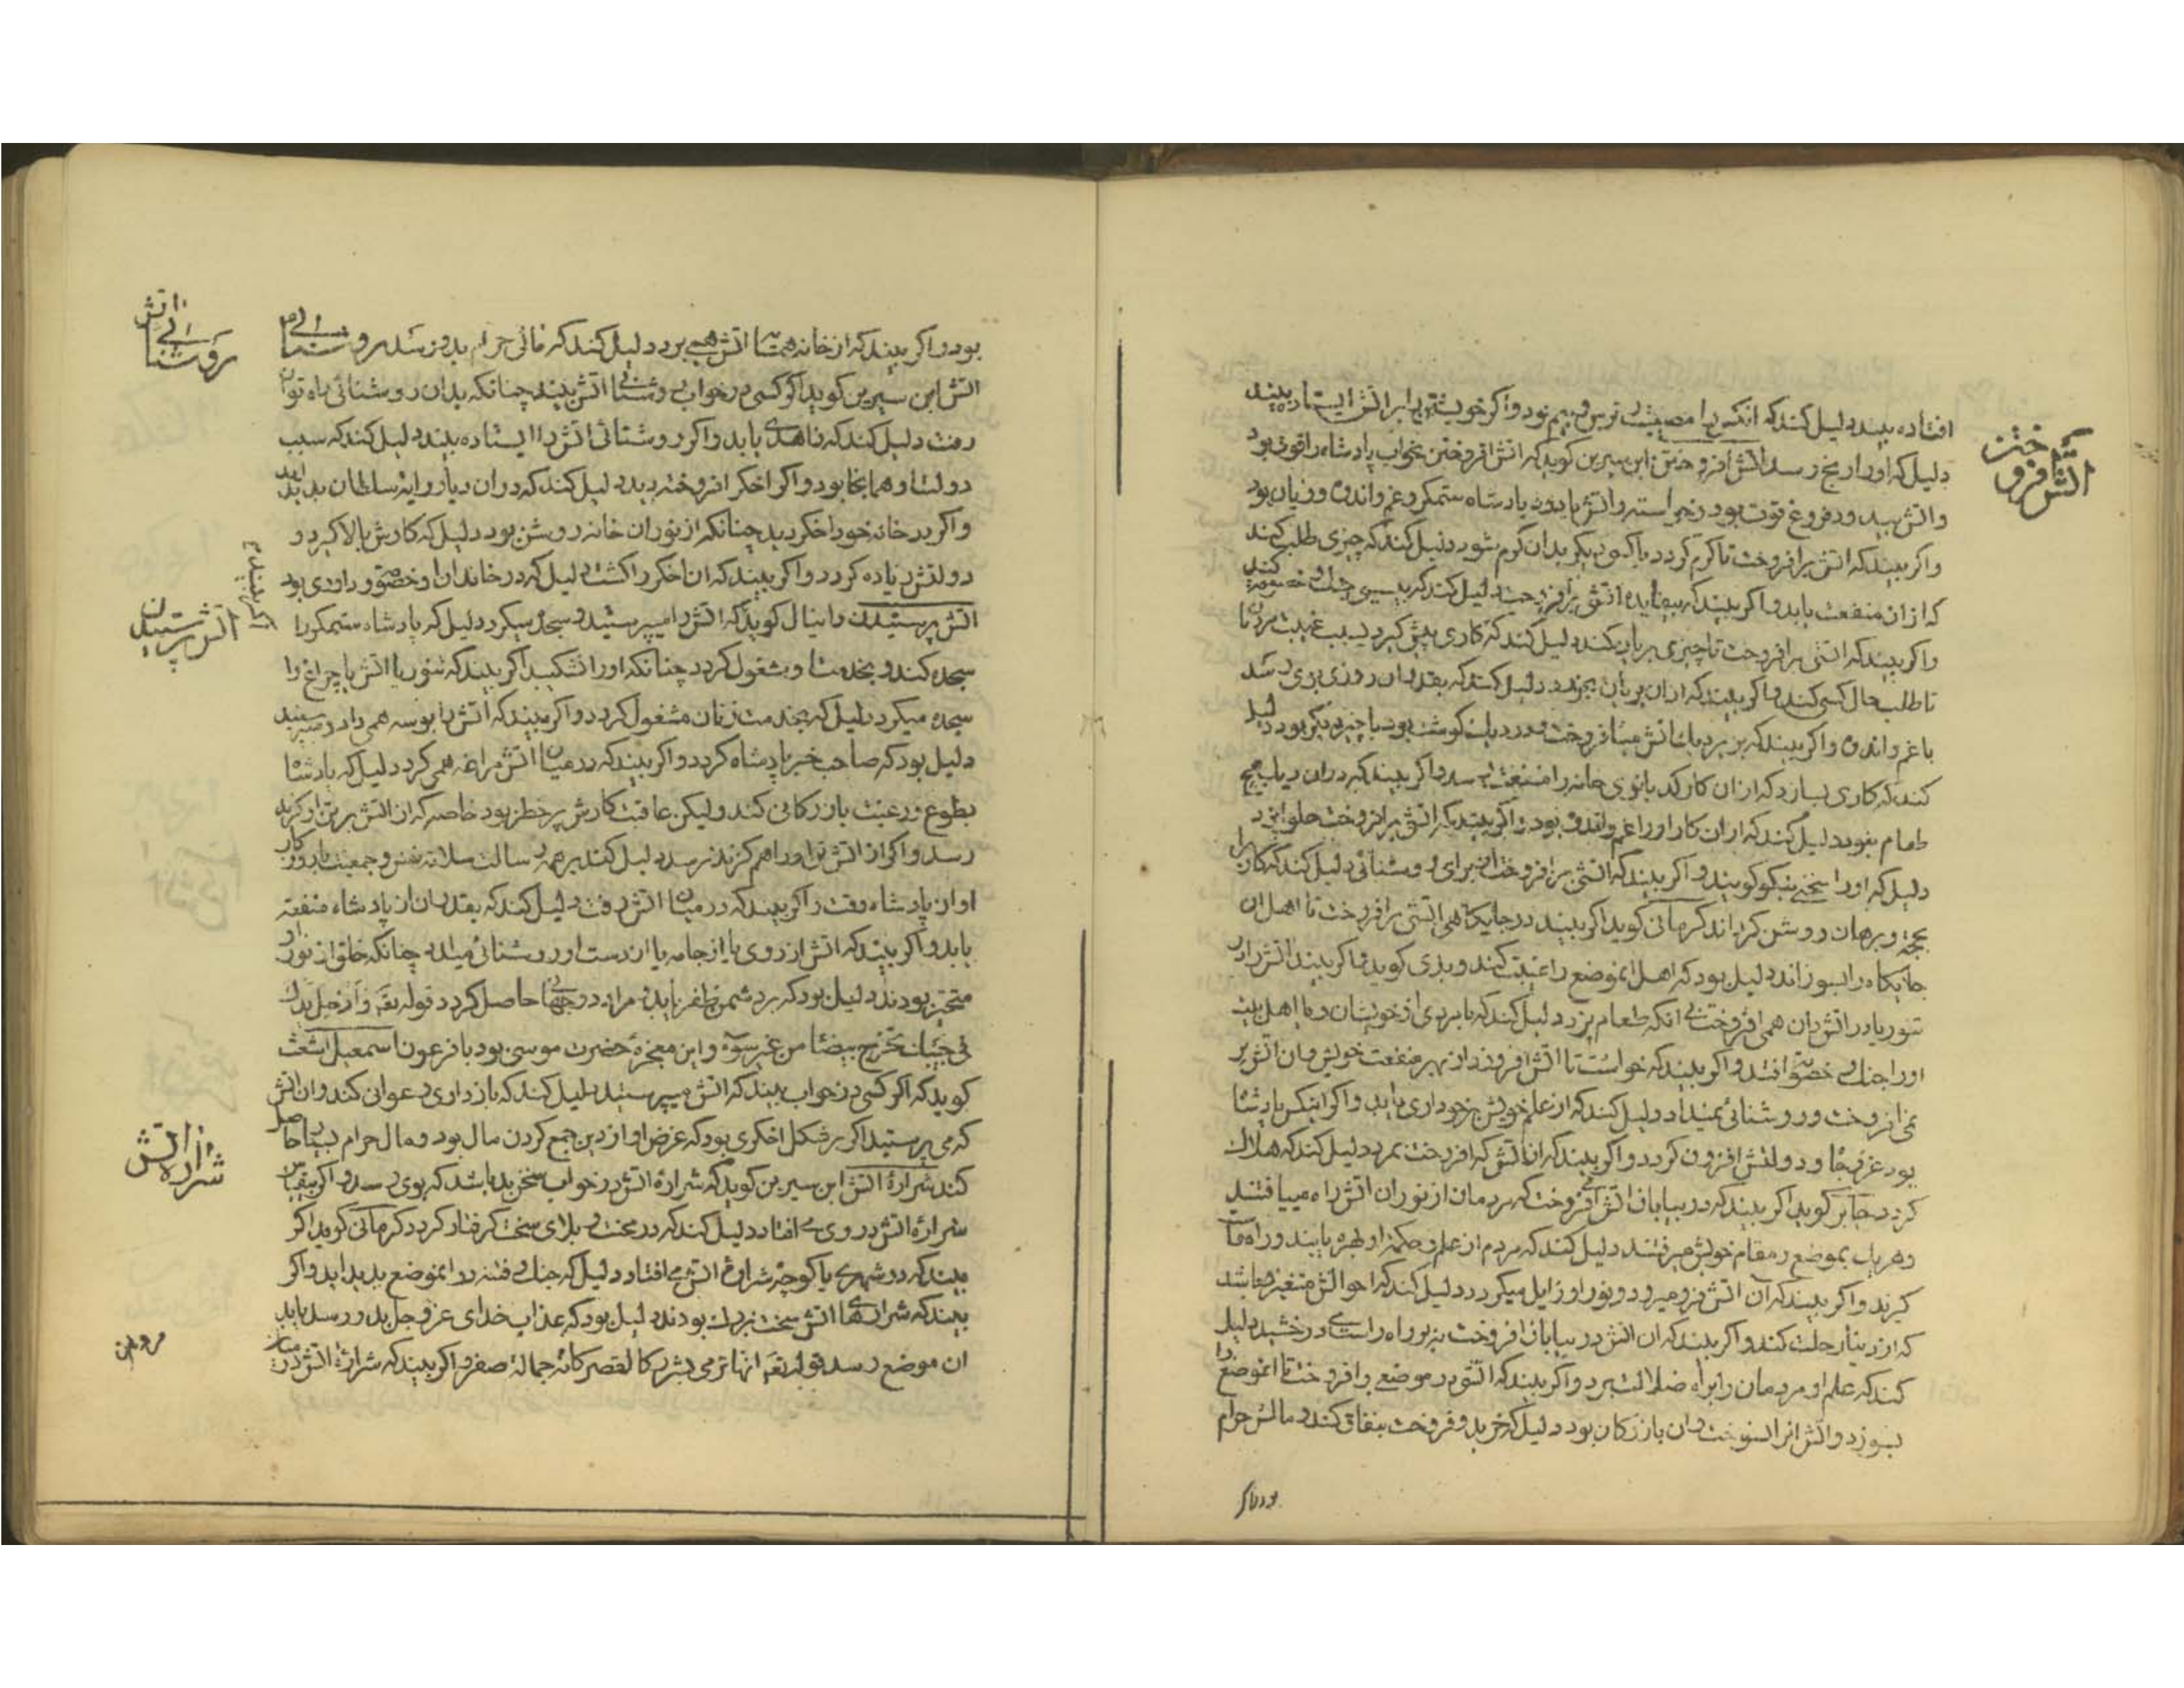 افتاده بیند دلیل کند که انکس را مصیبت و ترس و بیم بود و اگر خویشتن را برابر اتش ایستاده بیند
دلیل که اورا رنج رسد اتش افروختن ابن سیرین کوید که اتش افروختن بخواب پادشاه را قوت بود
اتش افروختن
و اکر بیند که اتش برافروخت تا کرم کردد یا کسی دیگر بدان کرم شود دلیل کند که چیزی طلب کند
که از ان منفعت یابد و اکر بیند که بیفایده اتش برافروخت دلیل کند که بسببی جنك و خصومت کند
و اکر بیند که اتش برافروخت تا چیزی بریان کند دلیل کند که کاری پیش کیرد بسبب غیبت مردم
تا طلب حال کسی کند و اکر بیند که ازان بریان بخورد دلیل کند که بقدر ان روزی بوی رسد
با غم و اندوه و اکر بیند که بزیر دیك اتش میافروخت و در دیك کوشت بود یا چیز دیکر بود دلیل
کند که کاری بسازد که از ان کار کدبانوی خانه را منفعت رسد و اکر بیند که دران دیك هیچ
طعام نبود دلیل کند که ازان کار اورا غم و اندوه بود و اکر بیند که اتش برافروخت حلوا پزد
دلیل که اورا سخن نیکو کویند و اکر بیند که اتش برافروخت از برای روشنائی دلیل کند که کارها را
بحجة و برهان روشن کرداند کرمانی کوید اکر بیند در جایکاهی اتشی برافروخت تا اهل ان
جایکاه را بسوزاند دلیل بود که اهل انموضع را غیبت کند و بدی کوید و اکر بیند اتش را در
تنور یا در اتشدان همی افروخت بی انکه طعام پزد دلیل کند که با مردی از خویشان و یا اهل بیت
اورا جنك و خصومت افتد و اکر بیند که خواست تا اتش افروزد از بهر منفعت خویش و ان اتش بر
نمی افروخت و روشنائی نمیداد دلیل کند که از علم خویش برخورداری یابد و اکر اینکس پادشاه
بود عز و جاه و دولتش افزون کردد و اکر بیند که ان اتش که افروخت بمرد دلیل کند که هلاك
کردد جابر کوید اکر بیند که در بیابان اتش افروخت که مردمان از نور ان اتش راه مییافتند
و هر یك بموضع و مقام خویش میرفتند دلیل کند که مردم از علم و حکمة او بهره یابند و راه
کیرند و اکر بیند که آن اتش فرو میرود و نور او زایل میکردد دلیل کند که احوالش متغیر باشد
که از دنیا رحلت کند و اکر بیند که ان اتش در بیابان افروخت نه بر راه راست درخشید دلیل
کند که علم او مردمان را براه ضلالت برد و اکر بیند که اتش در موضعی برافروخت تا انموضع را
بسوزد و اتش انرا نسوخت و ان بازرکان بود دلیل که خرید و فروخت بنفاق کند و مالش حرام
بود و اکر
بود و اکر بیند که از خانه همسایه اتش همی برد دلیل کند که مالی حرام بدو رسد روشنائی
روشنائی اتش
اتش ابن سیرین کوید اکر کسی در خواب روشنائی اتش بیند چنانکه بدان روشنائی راه توان
رفت دلیل کند که زاهدی یابد و اکر روشنائی اتش را ایستاده بیند دلیل کند که سبب
دولت او همانجا بود و اکر اخکر افروخته دید دلیل کند که دران دیار سلطان پدید اید
و اکر در خانه خود اخکر دید چنانکه از نور ان خانه روشن بود دلیل که کارش بالا کیرد و
دولتش زیاده کردد و اکر بیند که ان اخکر را کشت دلیل که در خاندان او خصومت و داوری بود
اتش پرستیدن دانیال کوید که اتش را میپرستید و سجده میکرد دلیل که پادشاه ستمکر را
اتش پرستیدن
اکر بیند
سجده کند و بخدمت او مشغول کردد چنانکه اورا اکر بیند که تنور یا اتش یا چراغ را
سجده میکرد دلیل که بخدمت زنان مشغول کردد و اکر بیند که اتش را بوسه همی داد و میپرستید
دلیل بود که صاحب خبر پادشاه کردد و اکر بیند که در میان اتش مراغه همی کرد دلیل که پادشاه
بطوع و رغبت بازرکانی کند ولیکن عاقبت کارش پر خطر بود خاصه که از اتش بر تن او کزند
رسد و اکر از اتش تن اورا هم کزند نرسد دلیل کند بر همه سالت سلامتة نفس و جمعیت بازو کار
او از پادشاه و اکر بیند که در میان اتش رفت دلیل کند که بقدر ان از پادشاه منفعة
یابد و اکر بیند که اتش از روی یا از جامه یا از دست او روشنائی میداد چنانکه خلق از نور او
متحیر بودند دلیل بود که بر دشمن ظفر یابد و مراد دو جهانی حاصل کردد قوله تعالی و ادخل یدك
فی جیبك تخرج بیضاء من غیر سوء و این معجزۀ حضرت موسی بود با فرعون اسمعیل اشعث
کوید که اکر کسی در خواب بیند که اتش میپرستید دلیل کند که بازداری و عوانی کند و ان اتش
که می پرستید اکر بشکل اخکری بود که غرض او از دین جمع کردن مال بود و مال حرام بسیار حاصل
کند شرارۀ اتش ابن سیرین کوید که شرارۀ اتش در خواب سخن بد باشد که بوی رسد و اکر بیند بقیاس
شرارۀ اتش
شرارۀ اتش در وی افتاد دلیل کند که در محنت و بلای سخت کرفتار کردد کرمانی کوید اکر
بیند که در شهری یا کوچه شرارۀ اتش می افتاد دلیل که جنك و فتنه در انموضع پدید اید و اکر
بیند که شرارهای اتش سخت بزرك بودند دلیل بود که عذاب خدای عز و جل بدو رسد یا بد
ان موضع رسد قوله تعالی انها ترمی بشرر کالقصر کانه جمالة صفر و اکر بیند که شرارۀ اتش در میان
مردمان